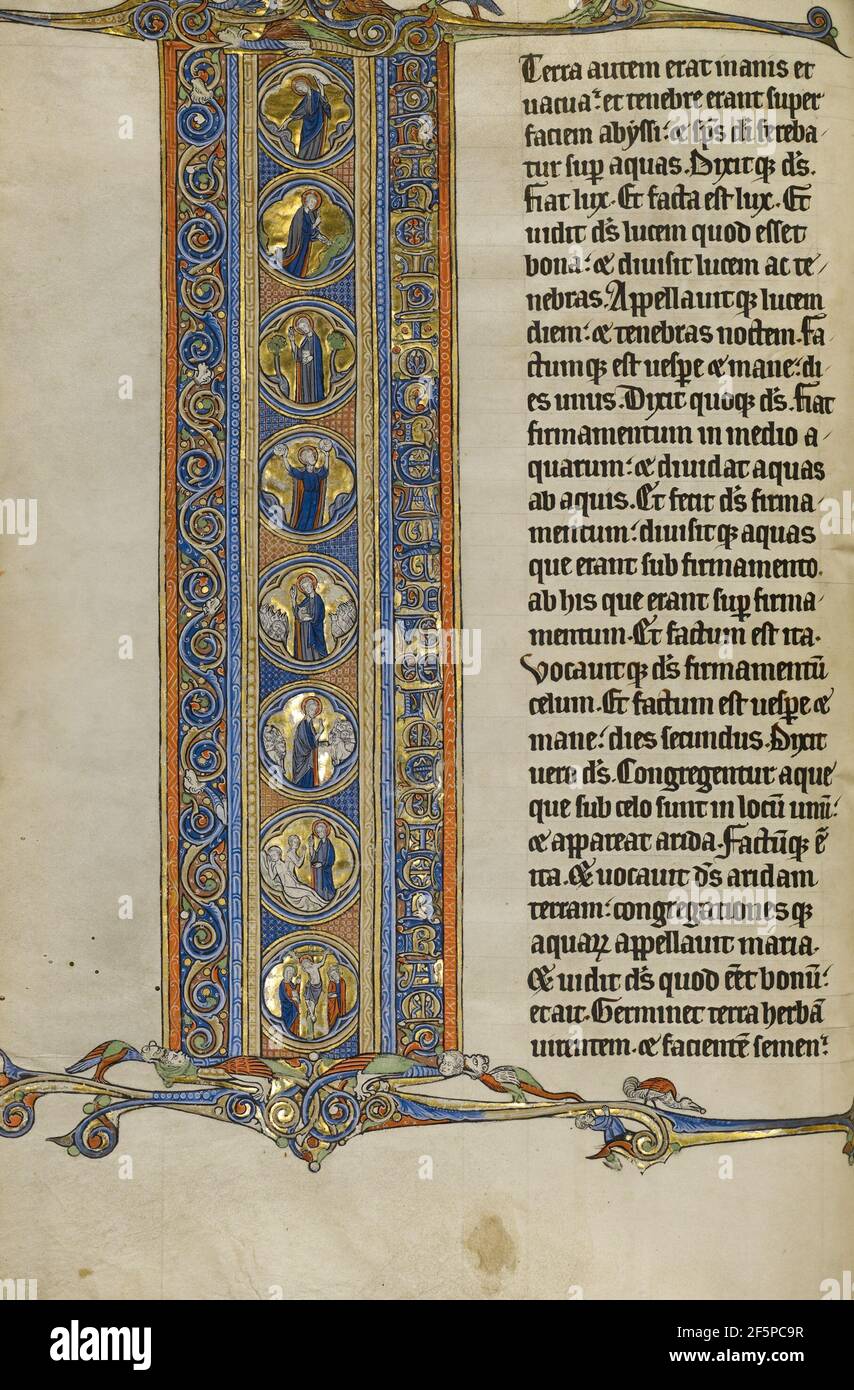 IN PRINCIPIO CREAVIT DEUS CELUM ET TERRAM
Terra autem erat inanis et
uacua: et tenebre erant super
faciem abyssi: & sp̄s di fereba/
tur sup aquas. Dixitqꝫ d̄s.
Fiat lux. Et facta est lux. Et
uidit d̄s lucem quod esset
bona: & diuisit lucem ac te/
nebras. Appellauitqꝫ lucem
diem: & tenebras noctem. Fa/
ctumqꝫ est uespe & mane: di/
es unus. Dixit quoqꝫ d̄s. Fiat
firmamentum in medio a/
quarum: & diuidat aquas
ab aquis. Et fecit d̄s firma/
mentum: diuisitqꝫ aquas
que erant sub firmamento.
ab his que erant sup firma/
mentum. Et factum est ita.
Vocauitqꝫ d̄s firmamentū
celum. Et factum est uespe &
mane: dies secundus. Dixit
uero d̄s. Congregentur aque
que sub celo sunt in locū unū:
& appareat arida. Factūqꝫ ē
ita. Et uocauit d̄s aridam
terram: congregationesqꝫ
aquaꝝ appellauit maria.
Et uidit d̄s quod eēt bonū:
et ait. Germinet terra herbā
uirentem. & facientē semen:
alamy
Image ID: 2F5PC9R
www.alamy.com